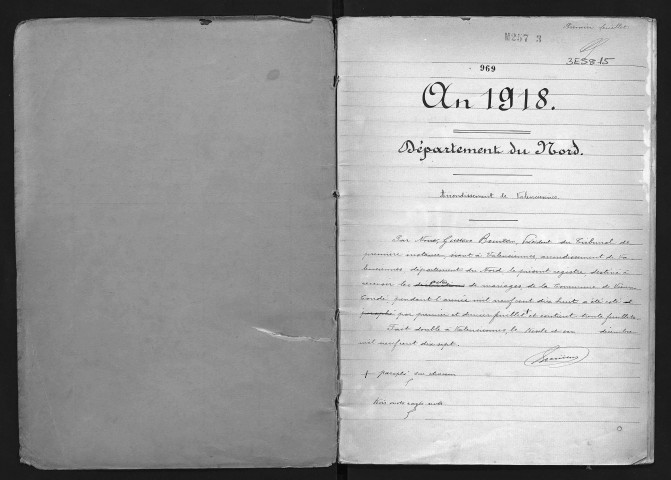 Premier feuillet
M257 3
3ES815
969
An 1918.
Département du Nord.
Arrondissement de Valenciennes
Par Nous, Président du Tribunal de
première instance, séant à Valenciennes, arrondissement de Va-
lenciennes département du Nord le présent registre destiné à
recevoir les actes de mariages de la Commune de Vieux
Condé pendant l'année mil neuf cent dix huit a été coté et
paraphé par premier et dernier feuillet et contient feuillets.
Fait double à Valenciennes, le décembre
mil neuf cent dix sept.
+ paraphé sur chacun
trois mots rayés nuls